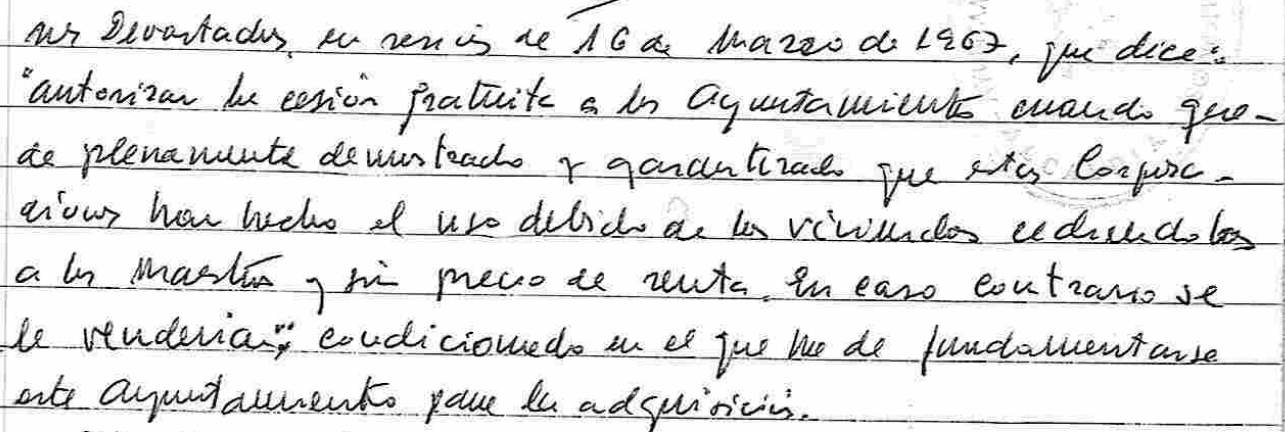 nes Devastadas, en sesión de 16 de Marzo de 1967, que dice:
"autorizar la cesión gratuita a los Ayuntamientos cuando que-
de plenamente demostrado y garantizado que estas Corpora-
ciones han hecho el uso debido de las viviendas cediendolas
a los Maestros y sin precio de renta. En caso contrario se
le venderian"; condicionado en el que ha de fundamentarse
este Ayuntamiento para la adquisición.